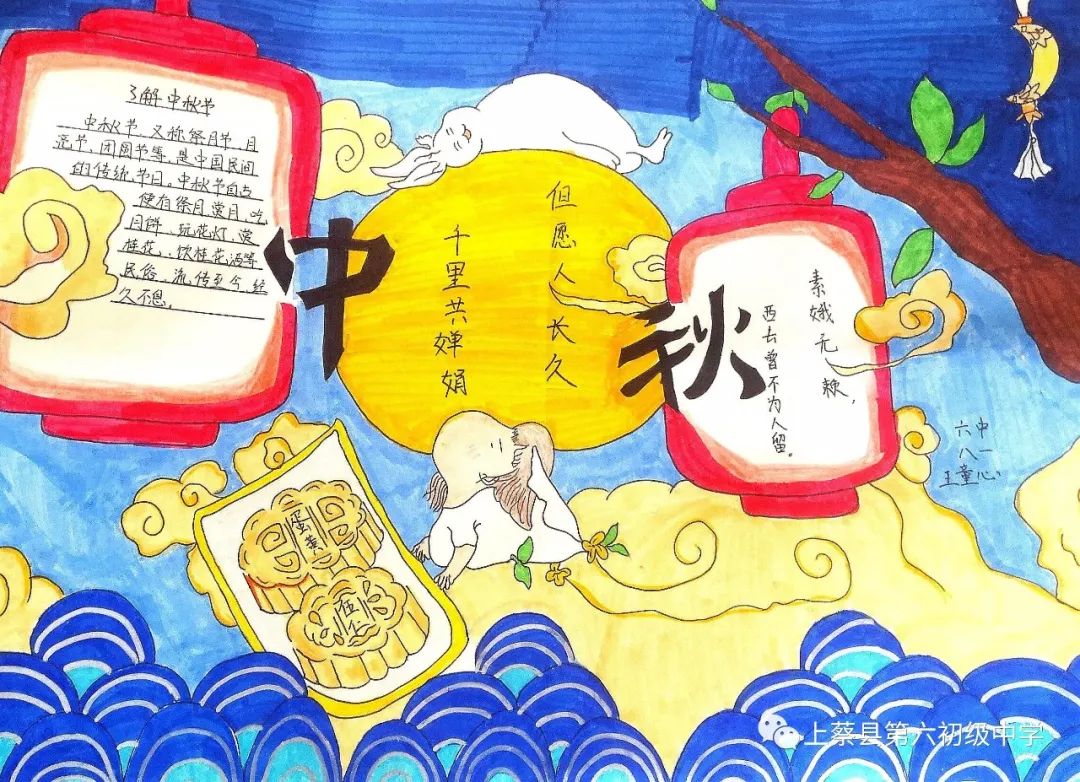 了解中秋节
中秋节、又称祭月节、月
节、团圆节等,是中国民间
的传统节日。中秋节自古
便有祭月、赏月、吃
月饼、玩花灯、赏
桂花、饮桂花酒等
民俗,流传至今,经
久不息。
中
秋
但愿人长久
千里共婵娟
素娥无,
西去曾不为人留。
蛋黄
伍仁
六中
八一
王童心
上蔡县第六初级中学